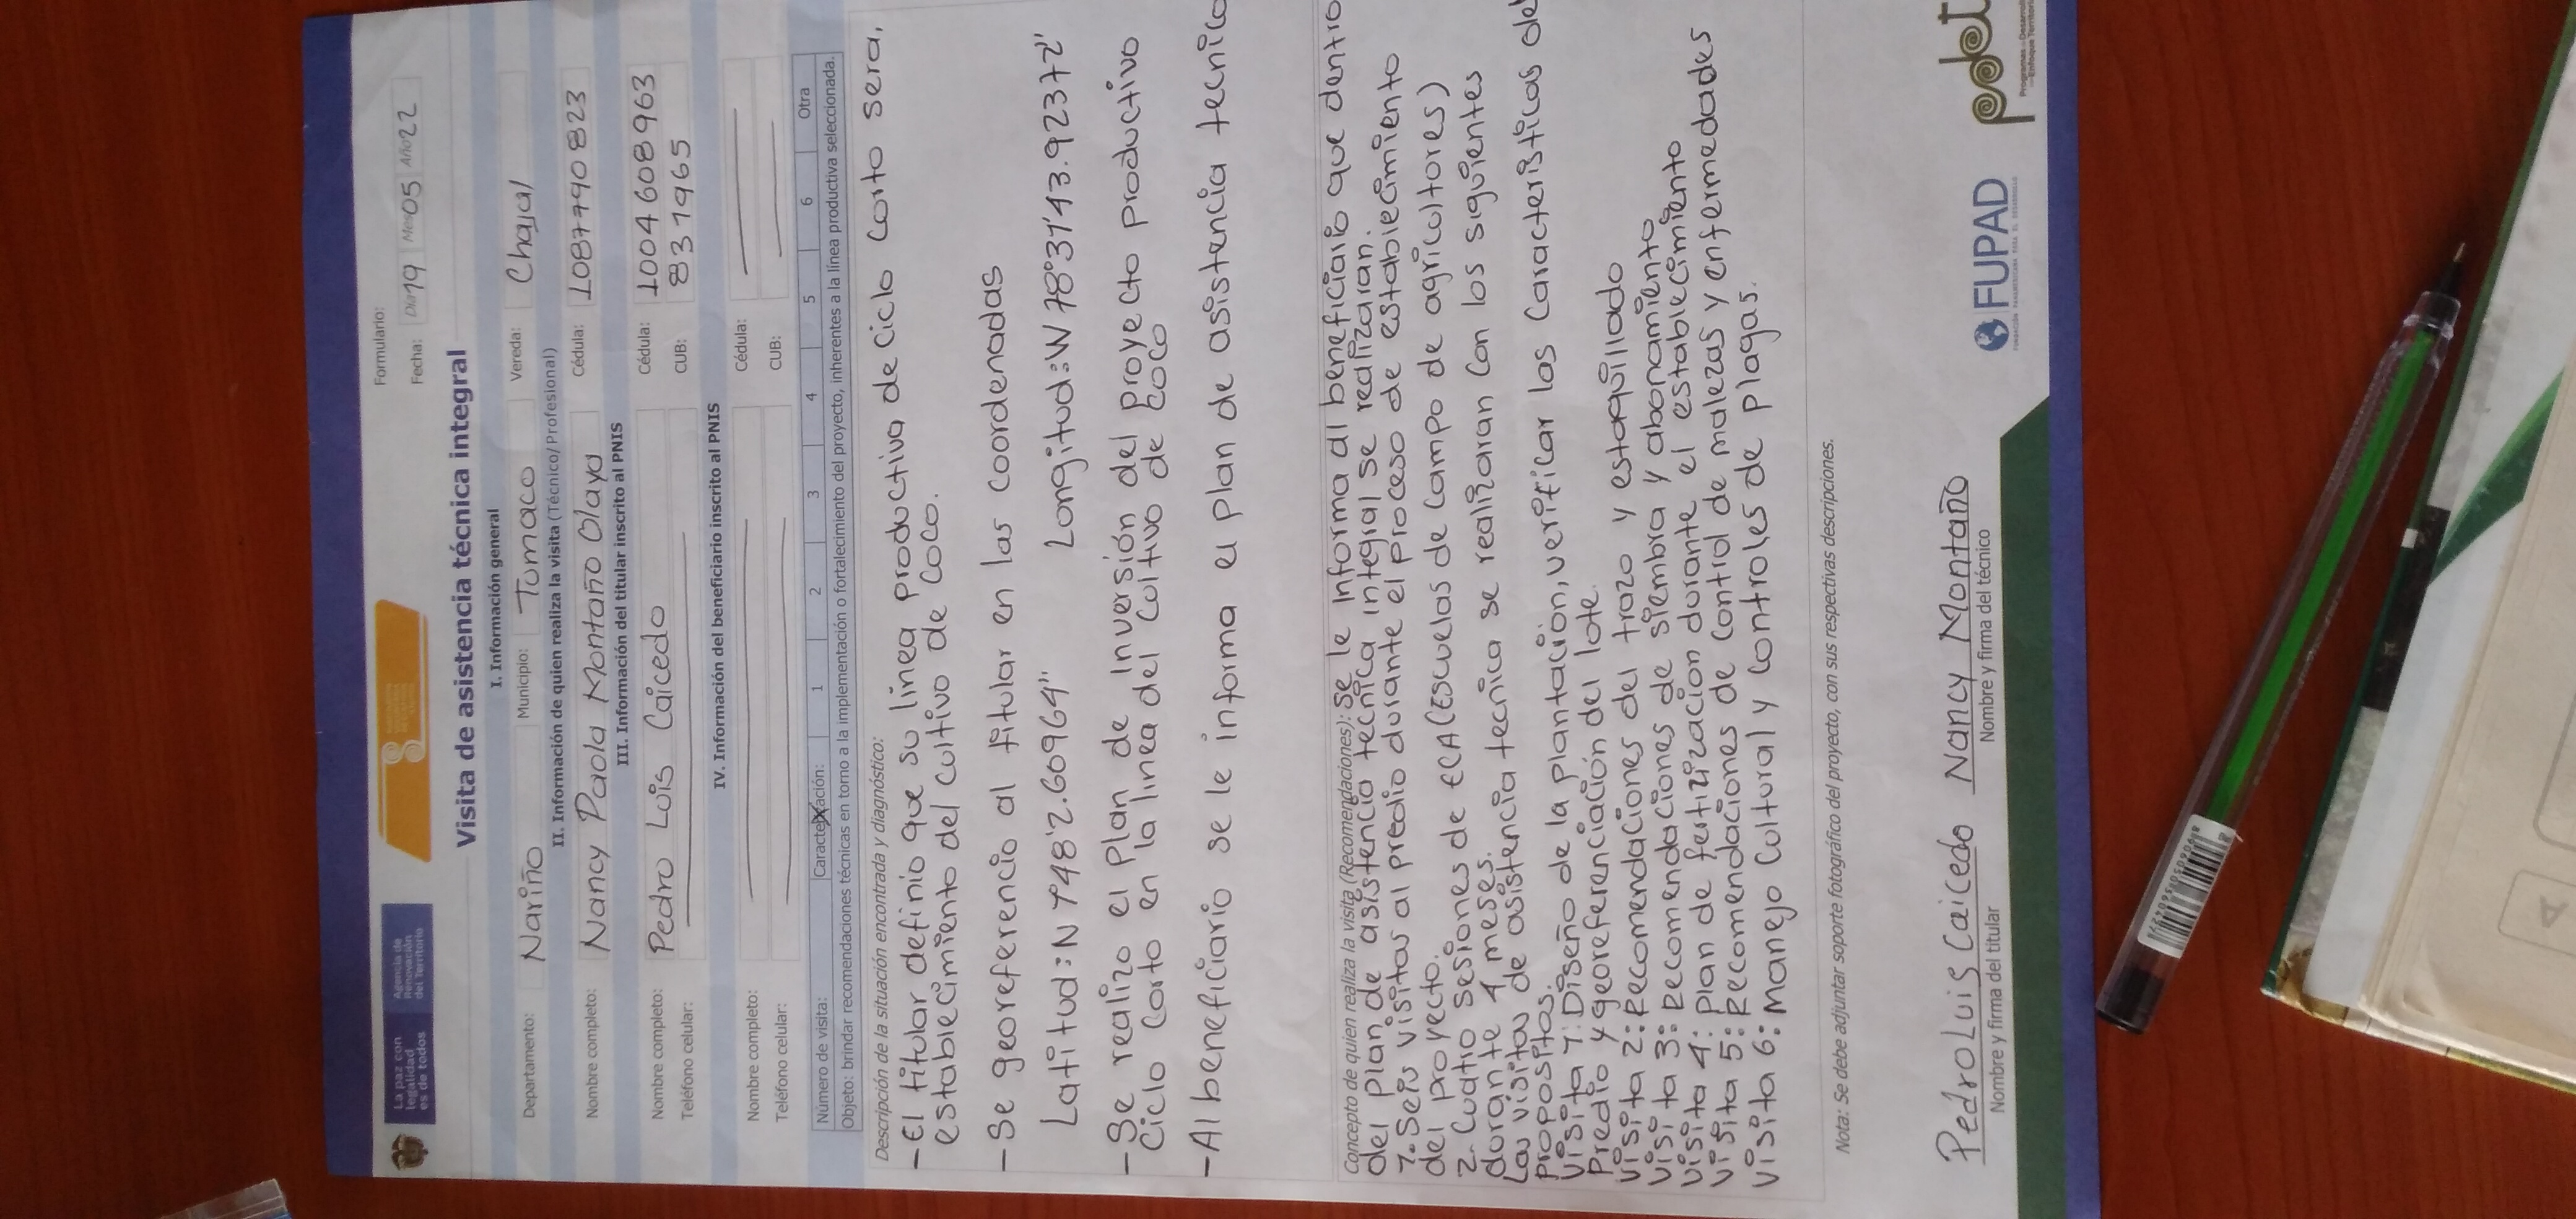 La paz con
legalidad
es de todos
Agencia de
Renovación
del Territorio
Formulario:
Fecha: Día 19 Mes 05 Año 22
Visita de asistencia técnica integral
I. Información general
Departamento: Nariño Municipio: Tumaco Vereda: Chajal
II. Información de quien realiza la visita (Técnico/ Profesional)
Nombre completo: Nancy Paola Montaño Olaya Cédula: 1087790823
III. Información del titular inscrito al PNIS
Nombre completo: Pedro Luis Caicedo Cédula: 1004608963
Teléfono celular: CUB: 8371965
IV. Información del beneficiario inscrito al PNIS
Nombre completo: Cédula:
Teléfono celular: CUB:
Número de visita: Caracterización: X 1 2 3 4 5 6 Otra
Objeto: brindar recomendaciones técnicas en torno a la implementación o fortalecimiento del proyecto, inherentes a la línea productiva seleccionada.
Descripción de la situación encontrada y diagnóstico:
- El titular definio que su linea productiva de ciclo corto sera,
establecimiento del cultivo de coco.
- Se georeferencio al titular en las coordenadas
Latitud: N 1°48'2.60964" Longitud: W 78°31'43.92372"
- Se realizo el Plan de Inversión del proyecto productivo
Ciclo corto en la linea del cultivo de coco
- Al beneficiario se le informa el plan de asistencia tecnico
Concepto de quien realiza la visita (Recomendaciones): Se le informa al beneficiario que dentro
del plan de asistencio tecnica integral se realizaran.
1. Seis visitas al predio durante el proceso de establecimiento
del proyecto.
2. Cuatro sesiones de ECA (Escuelas de campo de agricultores)
durante 4 meses.
Las visitas de asistencia tecnica se realizaran con los siguientes
propositos.
Visita 1: Diseño de la plantación, verificar las caracteristicas del
Predio y georeferenciación del lote.
Visita 2: Recomendaciones del trazo y estaquillado
Visita 3: Recomendaciones de siembra y abonamiento
Visita 4: plan de fertilizacion durante el establecimiento
Visita 5: Recomendaciones de control de malezas y enfermedades
Visita 6: Manejo Cultural y controles de plagas.
Nota: Se debe adjuntar soporte fotográfico del proyecto, con sus respectivas descripciones.
Pedro Luis Caicedo Nancy Montaño
Nombre y firma del titular Nombre y firma del técnico
FUPAD
FUNDACIÓN PANAMERICANA PARA EL DESARROLLO
pdet
Programas de Desarrollo
con Enfoque Territorial